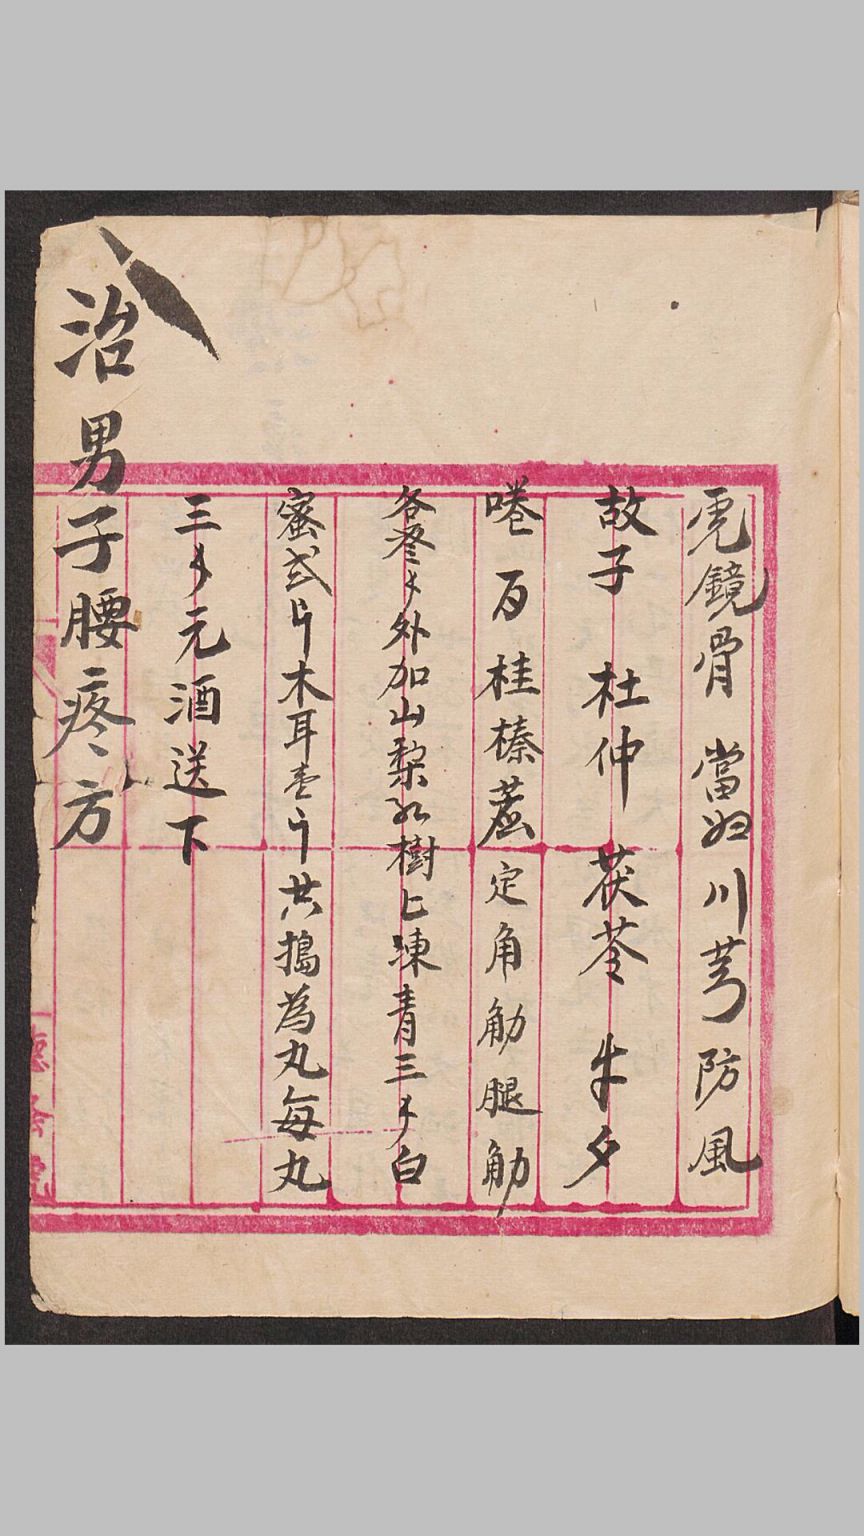 虎鏡骨 當归 川芎 防風
故子 杜仲 茯苓 牛夕
啳 百 桂 榛 蔗 定 角 觔 腿 觔
各叁 外加山梨 樹上凍青三 白
蜜弍片木耳壹 共搗為丸每丸
三 元酒送下
治男子腰疼方